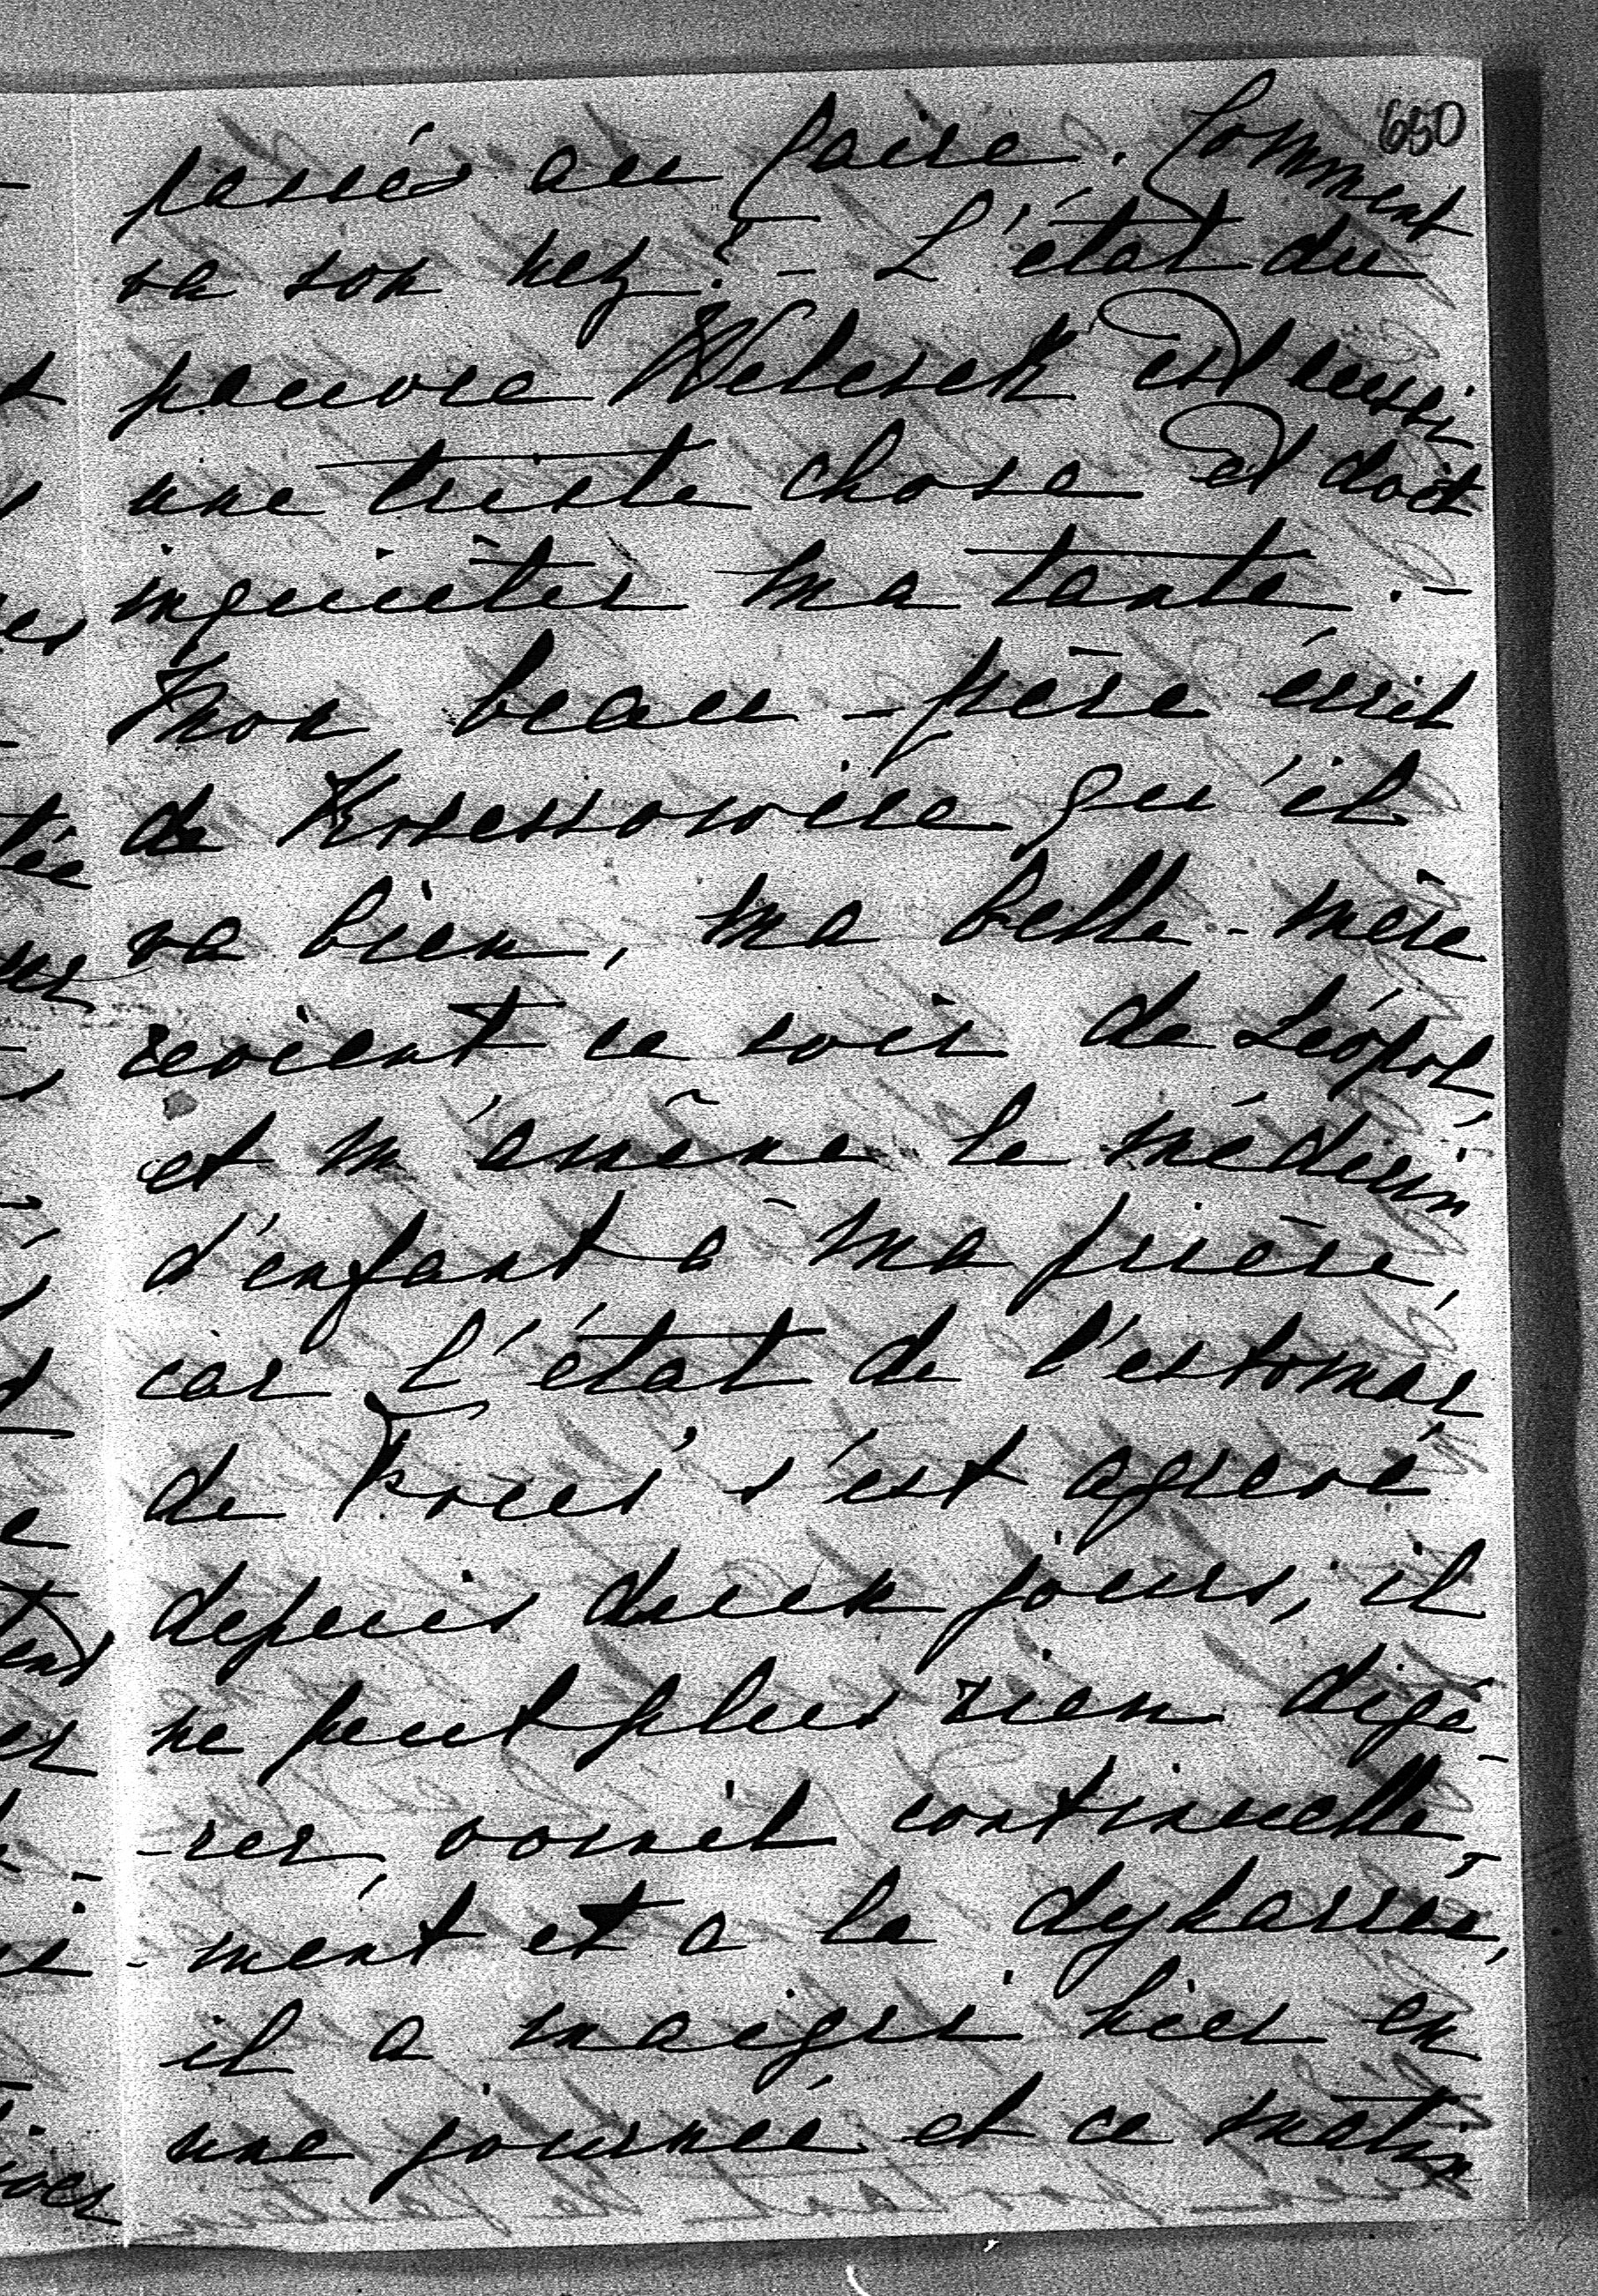 650
passés au faire. Comment
va son nez? – L'état du
pauvre est aussi
une triste chose et doit
inquiéter ma tante. –
Mon beau-père écrit
de qu'il
va bien, ma belle-mère
revient ce soir de Léopol,
et m'amène le médecin
d'enfant à ma prière,
car l'état de l'estomac
de s'est agravé
depuis deux jours, il
ne peut plus rien digé-
-rer, vomit continuelle-
-ment et a la
il a maigri hier en
une journée et ce matin